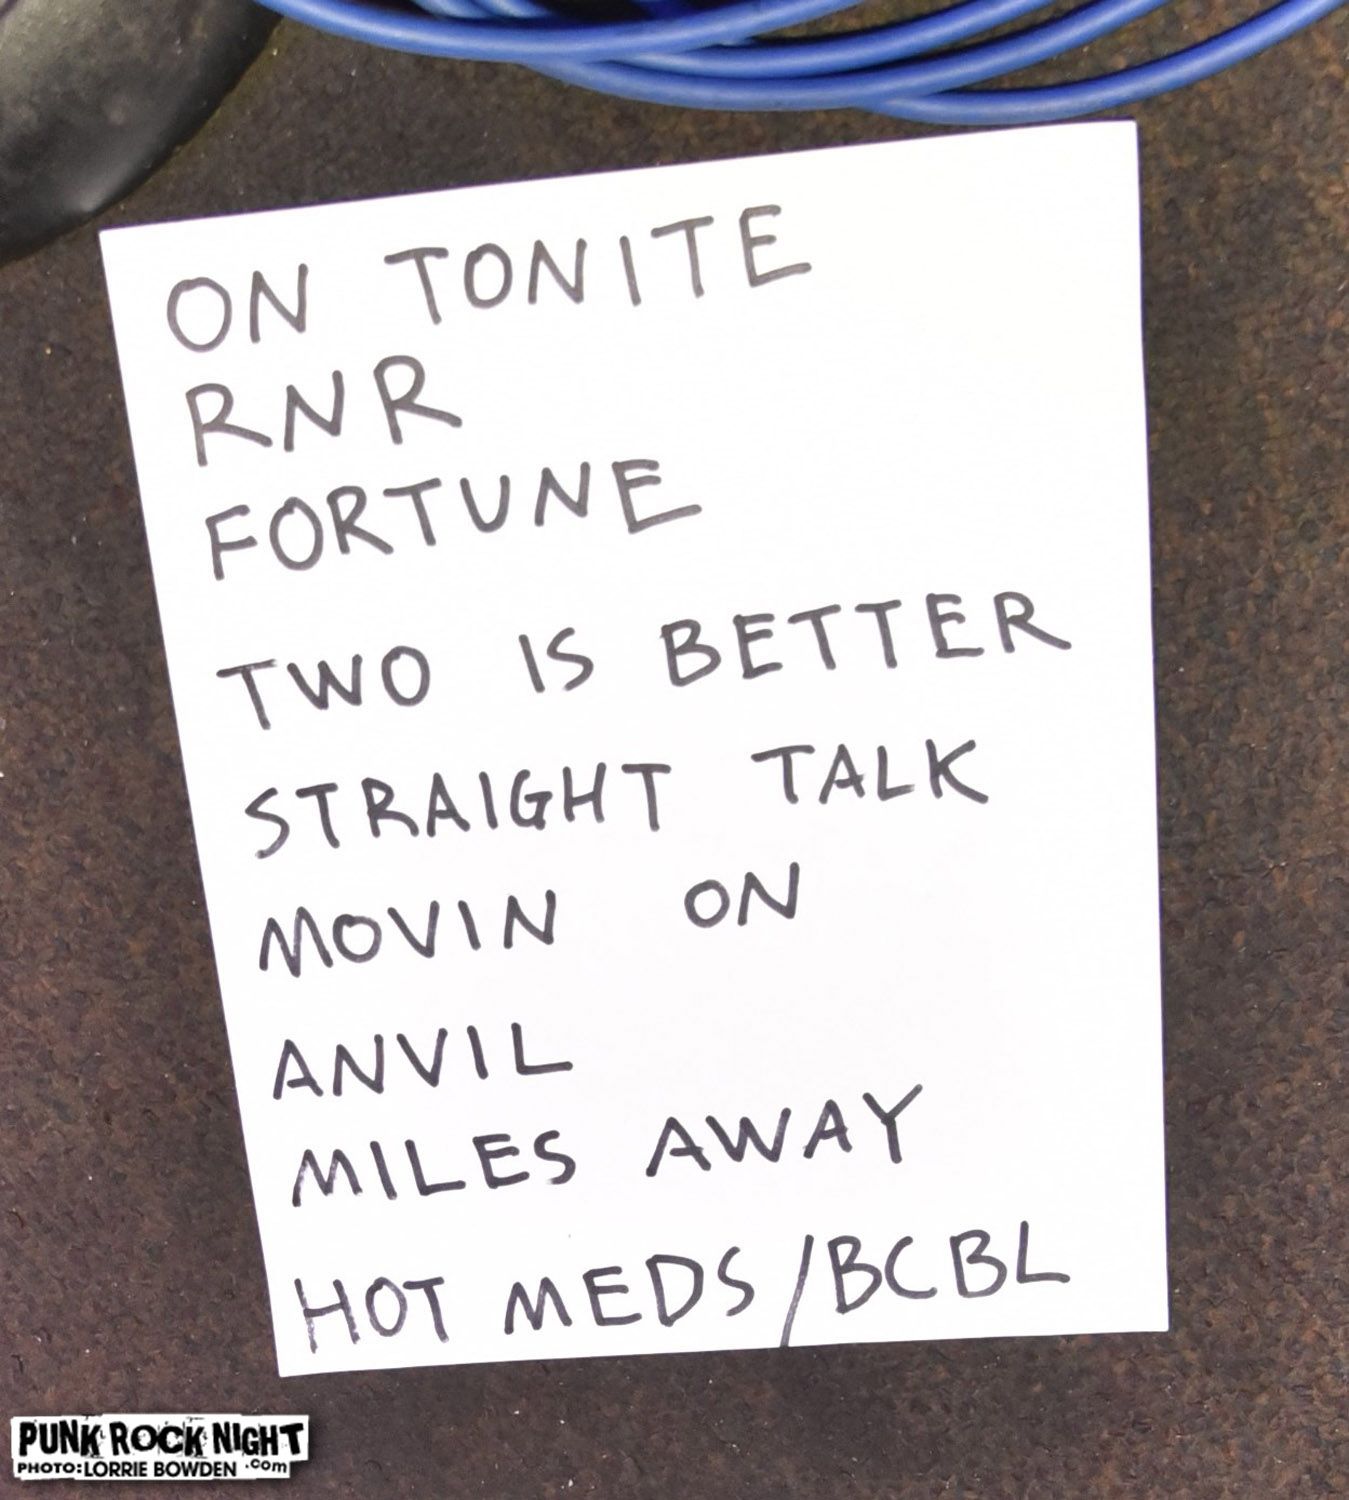 ON TONITE
RNR
FORTUNE
TWO IS BETTER
STRAIGHT TALK
MOVIN ON
ANVIL
MILES AWAY
HOT MEDS/BCBL
PUNK ROCK NIGHT
PHOTO:LORRIE BOWDEN .com